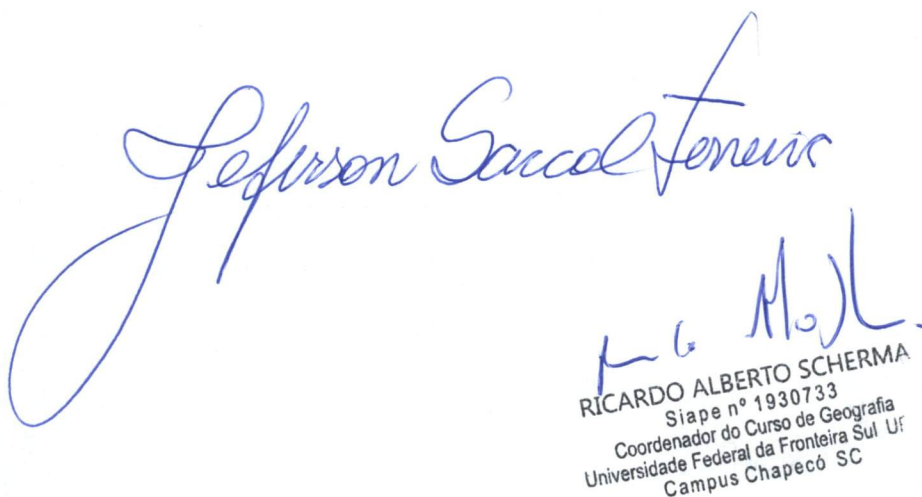 Jeferson Saccol Ferreira
RICARDO ALBERTO SCHERMA
Siape nº 1930733
Coordenador do Curso de Geografia
Universidade Federal da Fronteira Sul UF
Campus Chapecó SC